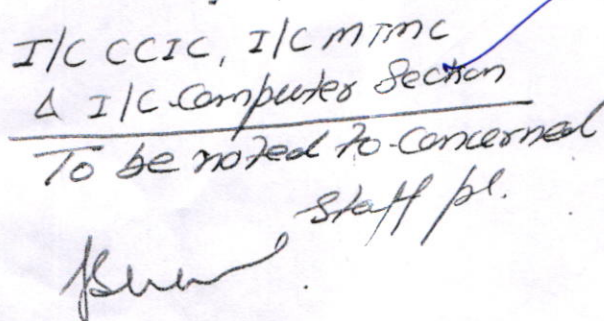 I/C CCIC, I/C MTMC
& I/C Computer Section
To be noted to concerned
staff pl.